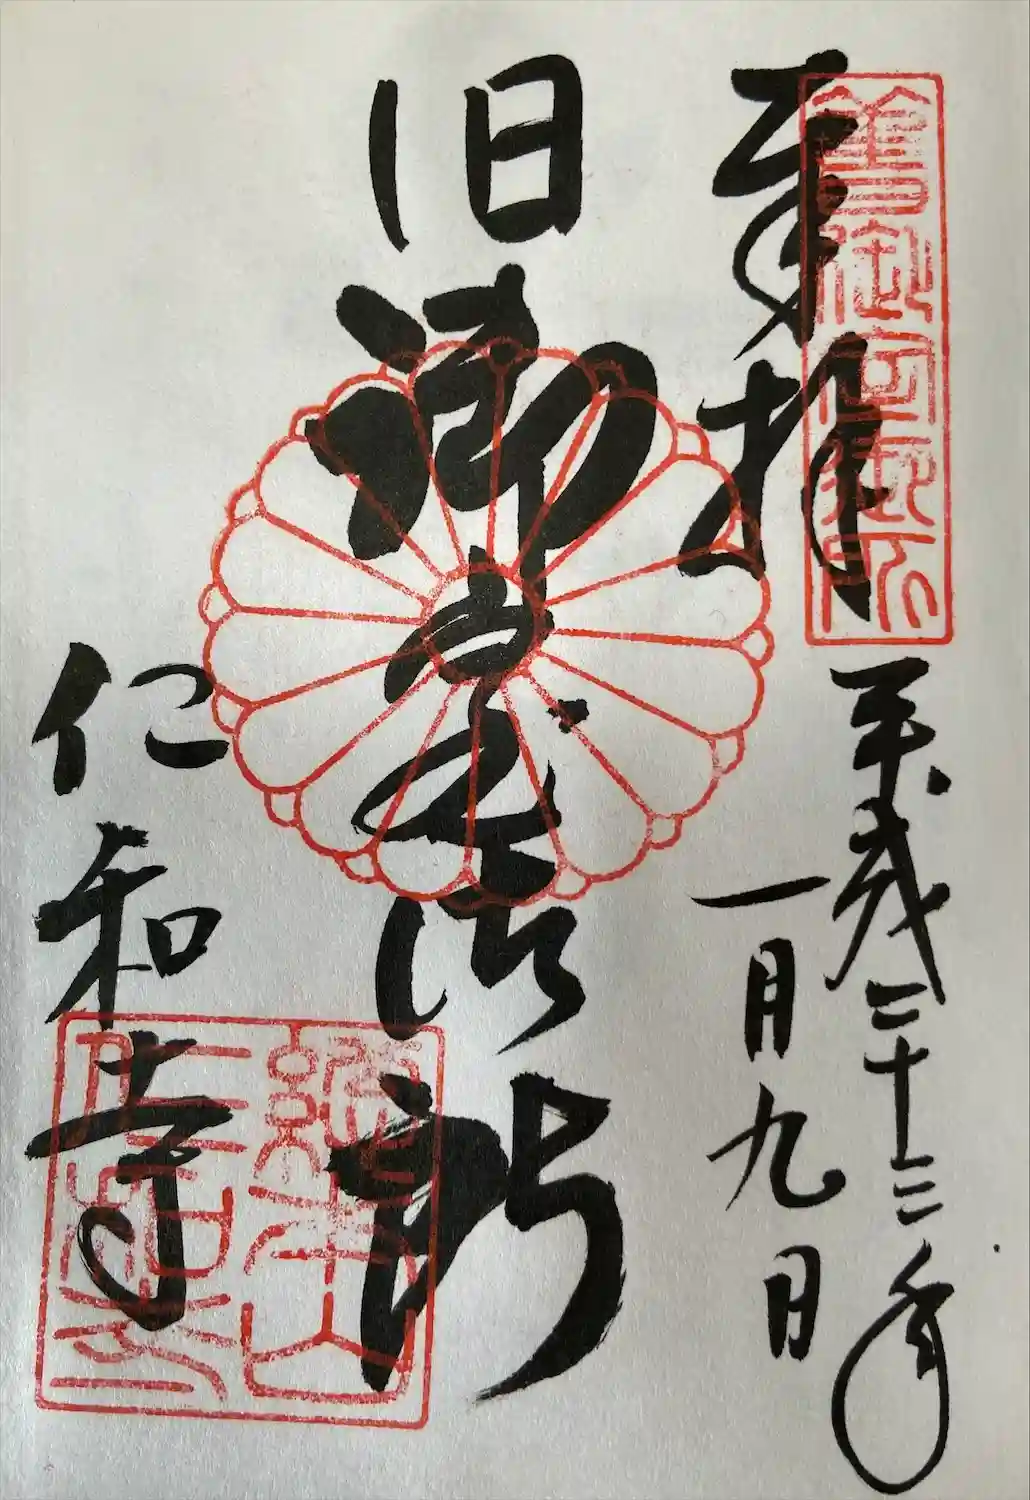 舊御室御所
奉拝
平成二十三年
一月九日
旧御室御所
仁和寺